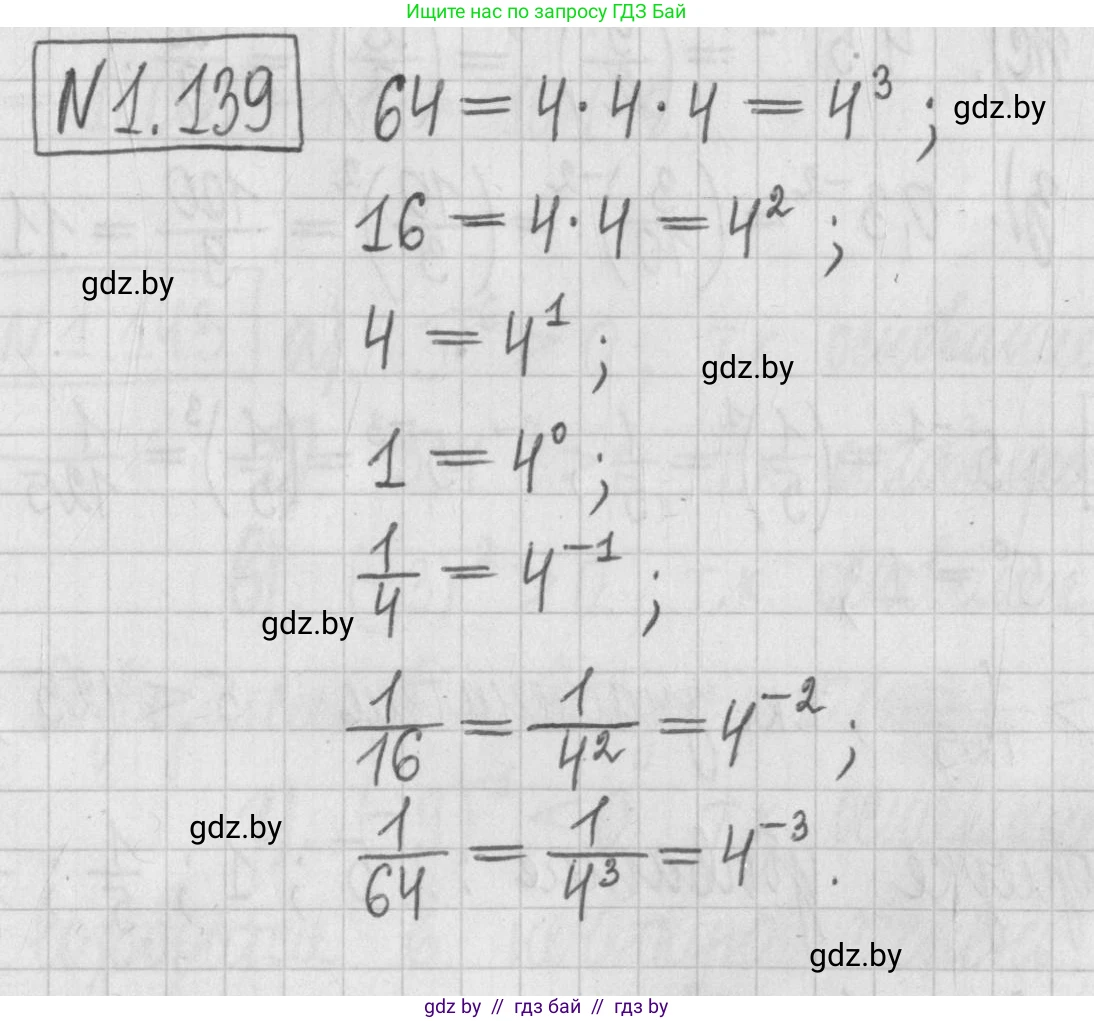 Ищите нас по запросу ГДЗ Бай
N 1.139
64 = 4 · 4 · 4 = 4³ ;
gdz.by
16 = 4 · 4 = 4² ;
gdz.by
4 = 4¹ ;
gdz.by
1 = 4⁰ ;
1/4 = 4⁻¹ ;
gdz.by
1/16 = 1/4² = 4⁻² ;
gdz.by
1/64 = 1/4³ = 4⁻³ .
gdz.by
gdz by // гдз бай // гдз by